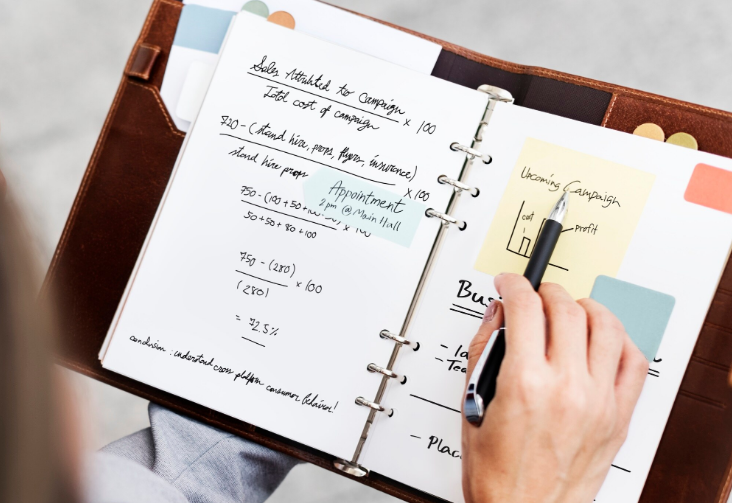 Sales Attributed to Campaign
Total cost of campaign
× 100
720 - (stand hire, props, flyers, insurance)
stand hire props
× 100
Appointment
2 pm @ Main Hall
750 - (100 + 50 +
× 100
50 + 50 + 80 + 100
750 - (280)
(280)
× 100
= 72.5%
conclusion : understand cross platform consumer behavior!
Upcoming Campaign
cost
profit
Bus
- Id
- Tea
- Plac